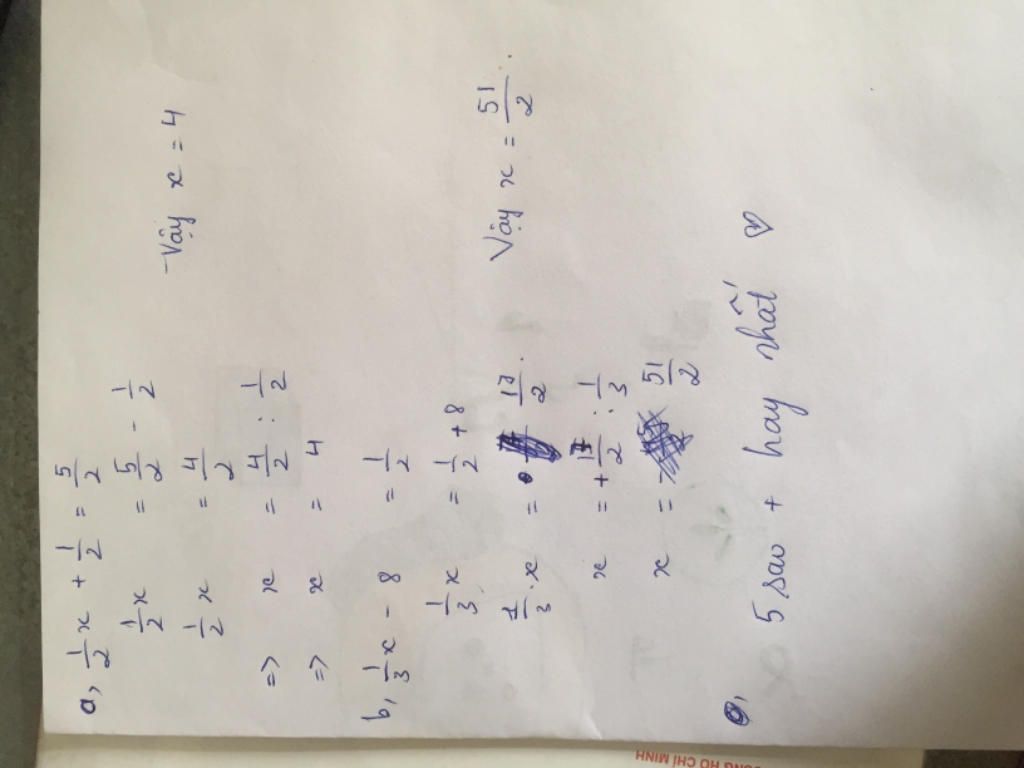 a, 1/2 x + 1/2 = 5/2
1/2 x = 5/2 - 1/2
1/2 x = 4/2
=> x = 4/2 : 1/2
=> x = 4
Vậy x = 4
b, 1/3 x - 8 = 1/2
1/3 x = 1/2 + 8
1/3 . x = 17/2 .
x = + 17/2 : 1/3
x = 51/2
Vậy x = 51/2 .
5 sao + hay nhất ♡
HỒ CHÍ MINH